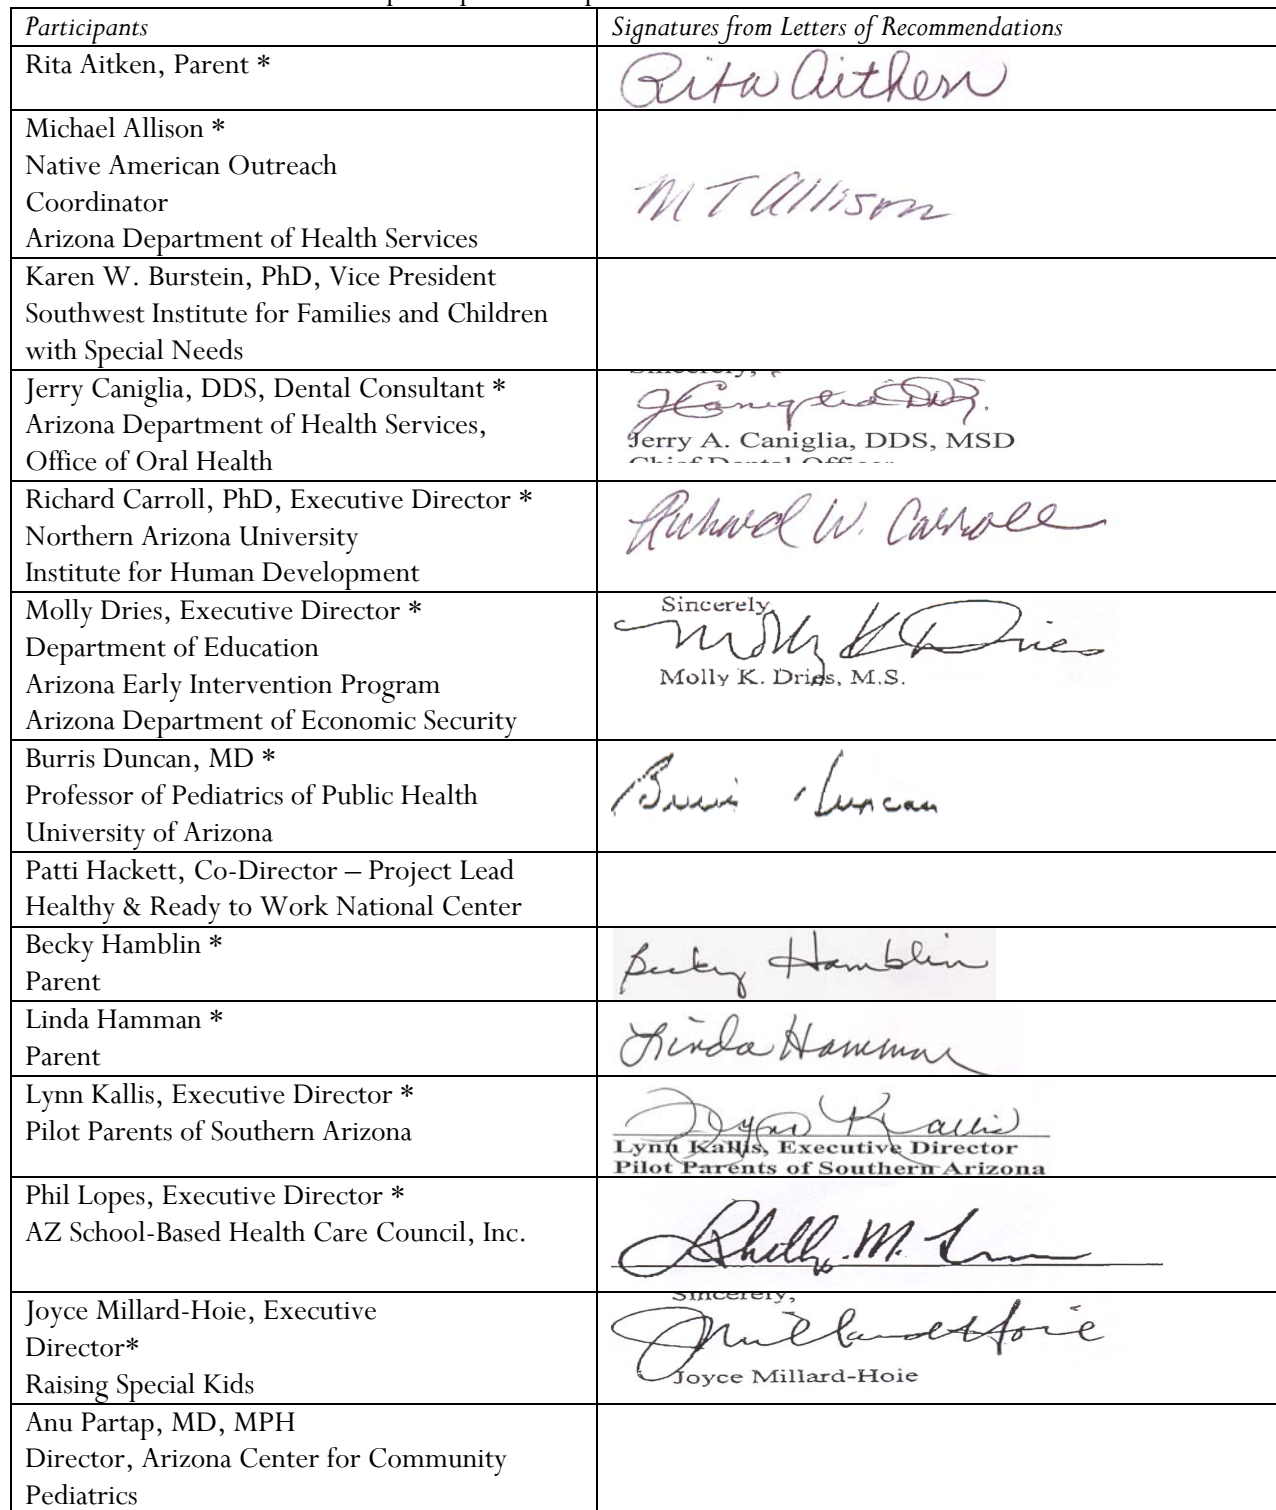 Participants
Signatures from Letters of Recommendations
Rita Aitken, Parent *
Rita Aitken
Michael Allison *
Native American Outreach
Coordinator
Arizona Department of Health Services
M T Allison
Karen W. Burstein, PhD, Vice President
Southwest Institute for Families and Children
with Special Needs
Jerry Caniglia, DDS, Dental Consultant *
Arizona Department of Health Services,
Office of Oral Health
Sincerely,
J Caniglia DDS.
Jerry A. Caniglia, DDS, MSD
Chief Dental Officer
Richard Carroll, PhD, Executive Director *
Northern Arizona University
Institute for Human Development
Richard W. Carroll
Molly Dries, Executive Director *
Department of Education
Arizona Early Intervention Program
Arizona Department of Economic Security
Sincerely
Molly K Dries
Molly K. Dries, M.S.
Burris Duncan, MD *
Professor of Pediatrics of Public Health
University of Arizona
Burris Duncan
Patti Hackett, Co-Director – Project Lead
Healthy & Ready to Work National Center
Becky Hamblin *
Parent
Becky Hamblin
Linda Hamman *
Parent
Linda Hamman
Lynn Kallis, Executive Director *
Pilot Parents of Southern Arizona
Lynn Kallis
Lynn Kallis, Executive Director
Pilot Parents of Southern Arizona
Phil Lopes, Executive Director *
AZ School-Based Health Care Council, Inc.
Joyce Millard-Hoie, Executive
Director*
Raising Special Kids
Sincerely,
JMillardHoie
Joyce Millard-Hoie
Anu Partap, MD, MPH
Director, Arizona Center for Community
Pediatrics